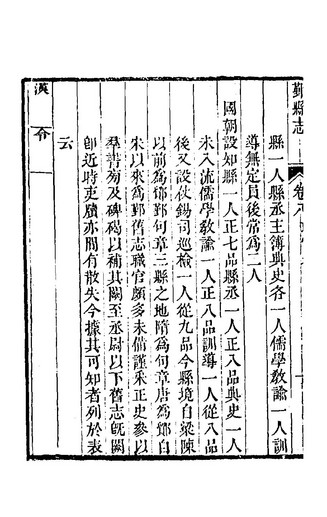 鄞縣志
卷八
縣一人縣丞主簿典史各一人儒學敎諭一人訓
導無定員後常爲二人
國朝設知縣一人正七品縣丞一人正八品典史一人
未入流儒學敎諭一人正八品訓導一人從八品
後又設仗錫司巡檢一人從九品今縣境自梁陳
以前爲鄮鄞句章三縣之地隋爲句章唐爲鄮自
宋以來爲鄞舊志職官頗多未備謹采正史參以
羣書列及碑碣以補其闕至丞尉以下舊志旣闕
卽近時吏牘亦間有散失今據其可知者列於表
云
漢 令